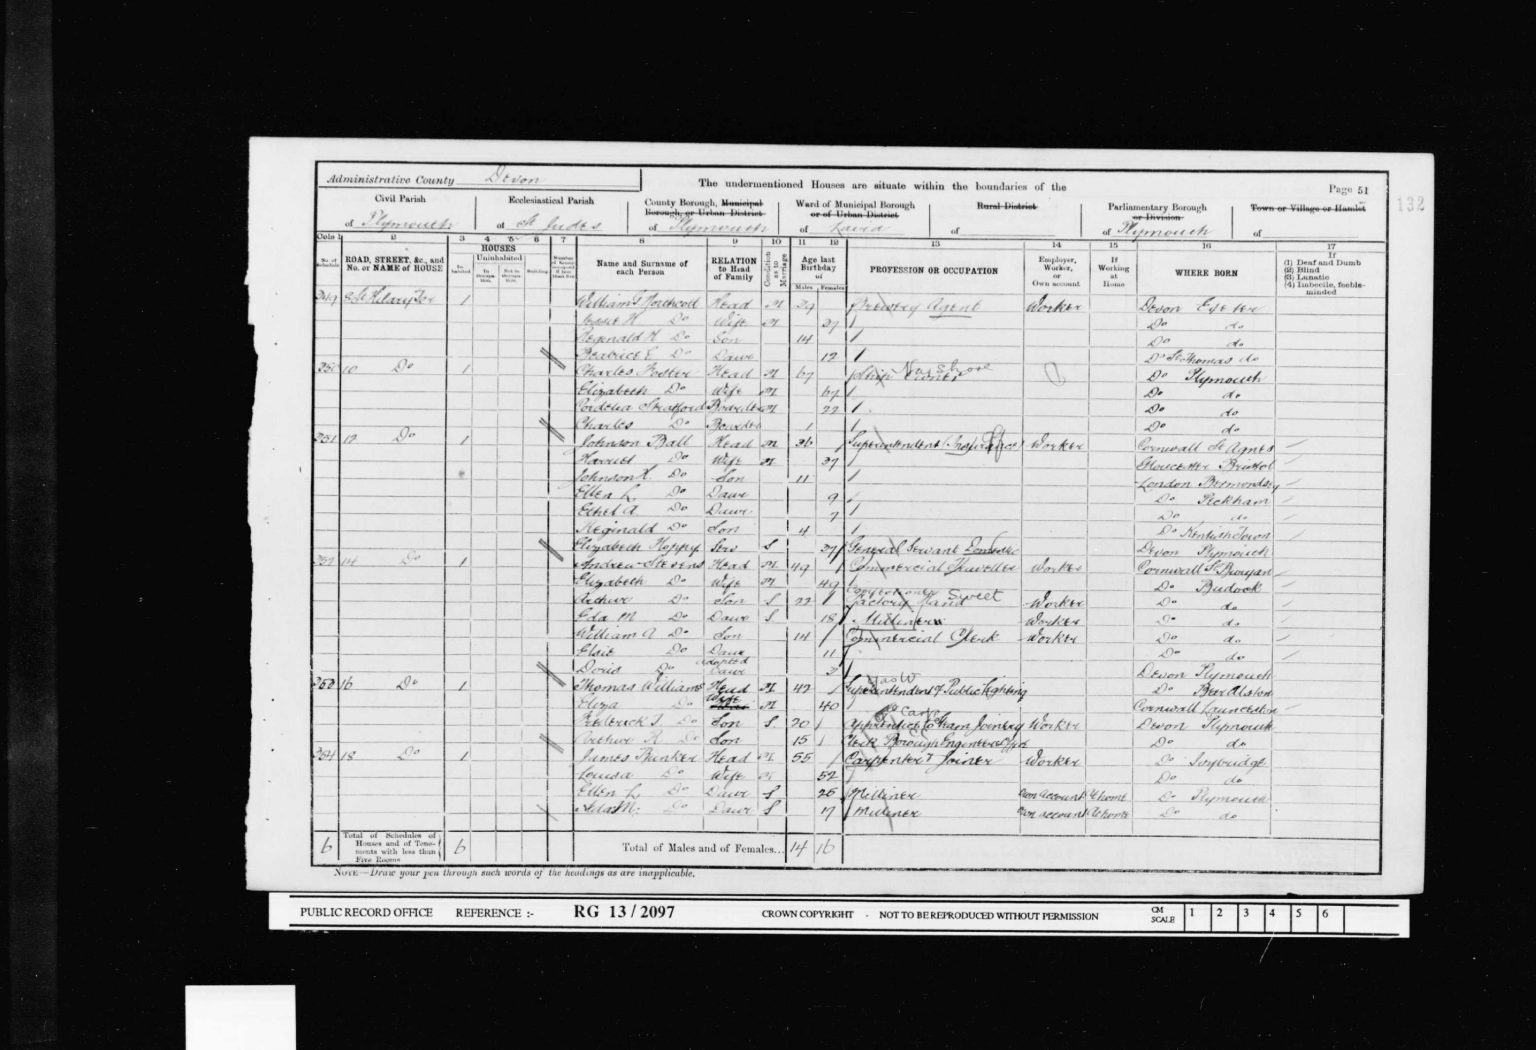 Administrative County Devon
The undermentioned Houses are situate within the boundaries of the
Page 51
132
Civil Parish of Plymouth
Ecclesiastical Parish of St Judes
County Borough, Municipal Borough, or Urban District of Plymouth
Ward of Municipal Borough or of Urban District of Laira
Rural District of
Parliamentary Borough or Division of Plymouth
Town or Village or Hamlet of
Cols 1 2 3 4 5 6 7 8 9 10 11 12 13 14 15 16 17
No. of Schedule
ROAD, STREET, &c., and No. or NAME of HOUSE
HOUSES
Uninhabited
Building
Name and Surname of each Person
RELATION to Head of Family
Condition as to Marriage
Age last Birthday of
Males Females
PROFESSION OR OCCUPATION
Employer, Worker, or Own account
If Working at Home
WHERE BORN
If (1) Deaf and Dumb (2) Blind (3) Lunatic (4) Imbecile, feeble-minded
349 8 St Hilary Ter 1 William J Northcott Head M 39 Brewery Agent Worker Devon Exeter
Jessie H Do Wife M 37 Do do
Reginald H Do Son 14 Do do
Beatrice E Do Daur 12 Do St Thomas do
350 10 Do 1 Charles Foster Head M 67 Do Plymouth
Elizabeth Do Wife M 67 Do do
Cordelia Boarder M 22 Do do
Charles Do Boarder 1 Do do
351 12 Do 1 Johnson Ball Head M 36 Superintendent (Insurance) Worker Cornwall St Agnes
Harriet Do Wife M 37 Gloucester Bristol
Johnson H. Do Son 11 London Bermondsey
Ellen L. Do Daur 9 Do Peckham
Ethel A. Do Daur 7 Do do
Reginald Do Son 4 Do Kentish Town
Elizabeth Hoppy Serv S 37 General Servant Domestic Devon Plymouth
352 14 Do 1 Andrew Stevens Head M 49 Commercial Traveller Worker Cornwall St Buryan
Elizabeth Do Wife M 49 Do Budock
Arthur Do Son S 22 Confectioner Sweet Factory Hand Worker Do do
Eda M Do Daur S 18 Milliner Worker Do do
William A Do Son 14 Commercial Clerk Worker Do do
Elsie Do Daur 11 Do do
Doris Do Adopted Daur 3 Devon Plymouth
353 16 Do 1 Thomas Williams Head M 42 Superintendent of Public Lighting Do Beer Alston
Eliza Do Wife M 40 Cornwall Launceston
Frederick J. Do Son S 20 Apprentice to Steam Joinery Worker Devon Plymouth
Arthur R Do Son 15 Clerk Borough Engineers Office Do do
354 18 Do 1 James Bunker Head M 55 Carpenter & Joiner Worker Do Ivybridge
Louisa Do Wife M 52 Do do
Ellen L Do Daur S 25 Milliner Own account At home Do Plymouth
Ada M. Do Daur S 17 Milliner Own account At home Do do
6 Total of Schedules of Houses and of Tenements with less than Five Rooms 6 Total of Males and of Females... 14 16
NOTE—Draw your pen through such words of the headings as are inapplicable.
PUBLIC RECORD OFFICE REFERENCE :- RG 13/2097 CROWN COPYRIGHT - NOT TO BE REPRODUCED WITHOUT PERMISSION CM SCALE 1 2 3 4 5 6